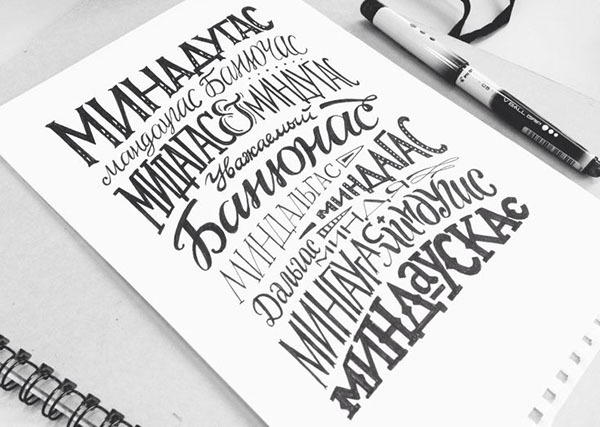 МИНАДУГАС
Мандаугас Банючас
МИДАГАС & МИНДУГАС
Уважаемый
Банюнас
МИНДАЛЬГАС МИНДАГАС
Дальгас МИНДАЯ
МИНГАУГАС
МИНДАУСКАС
V BALL GRIP